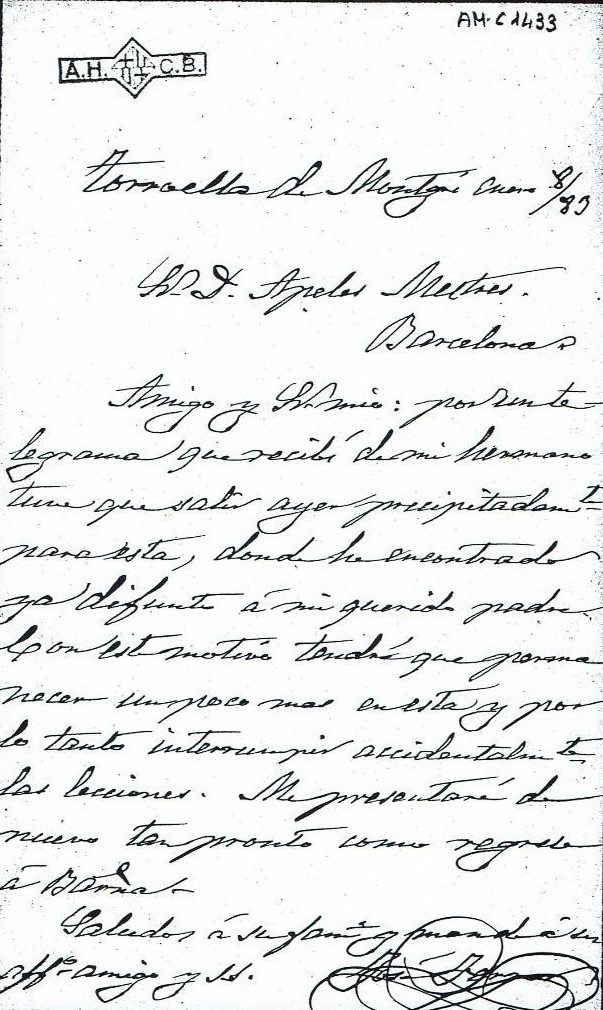 AM-C 1433
A.H. C.B.
Torroella de Montgrí enero 8/83
Sr. D. Apeles Mestres.
Barcelona
Amigo y Sr. mio: por un te-
legrama que recibí de mi hermano
tuve que salir ayer precipitadamte
para esta, donde he encontrado
ya difunto á mi querido padre.
Con este motivo tendré que perma
necer un poco mas en esta y por
lo tanto interrumpir accidentalmte
las lecciones. Me presentaré de
nuevo tan pronto como regrese
á Barna.
Saludos á su fama y mande á su
affo amigo y ss. José